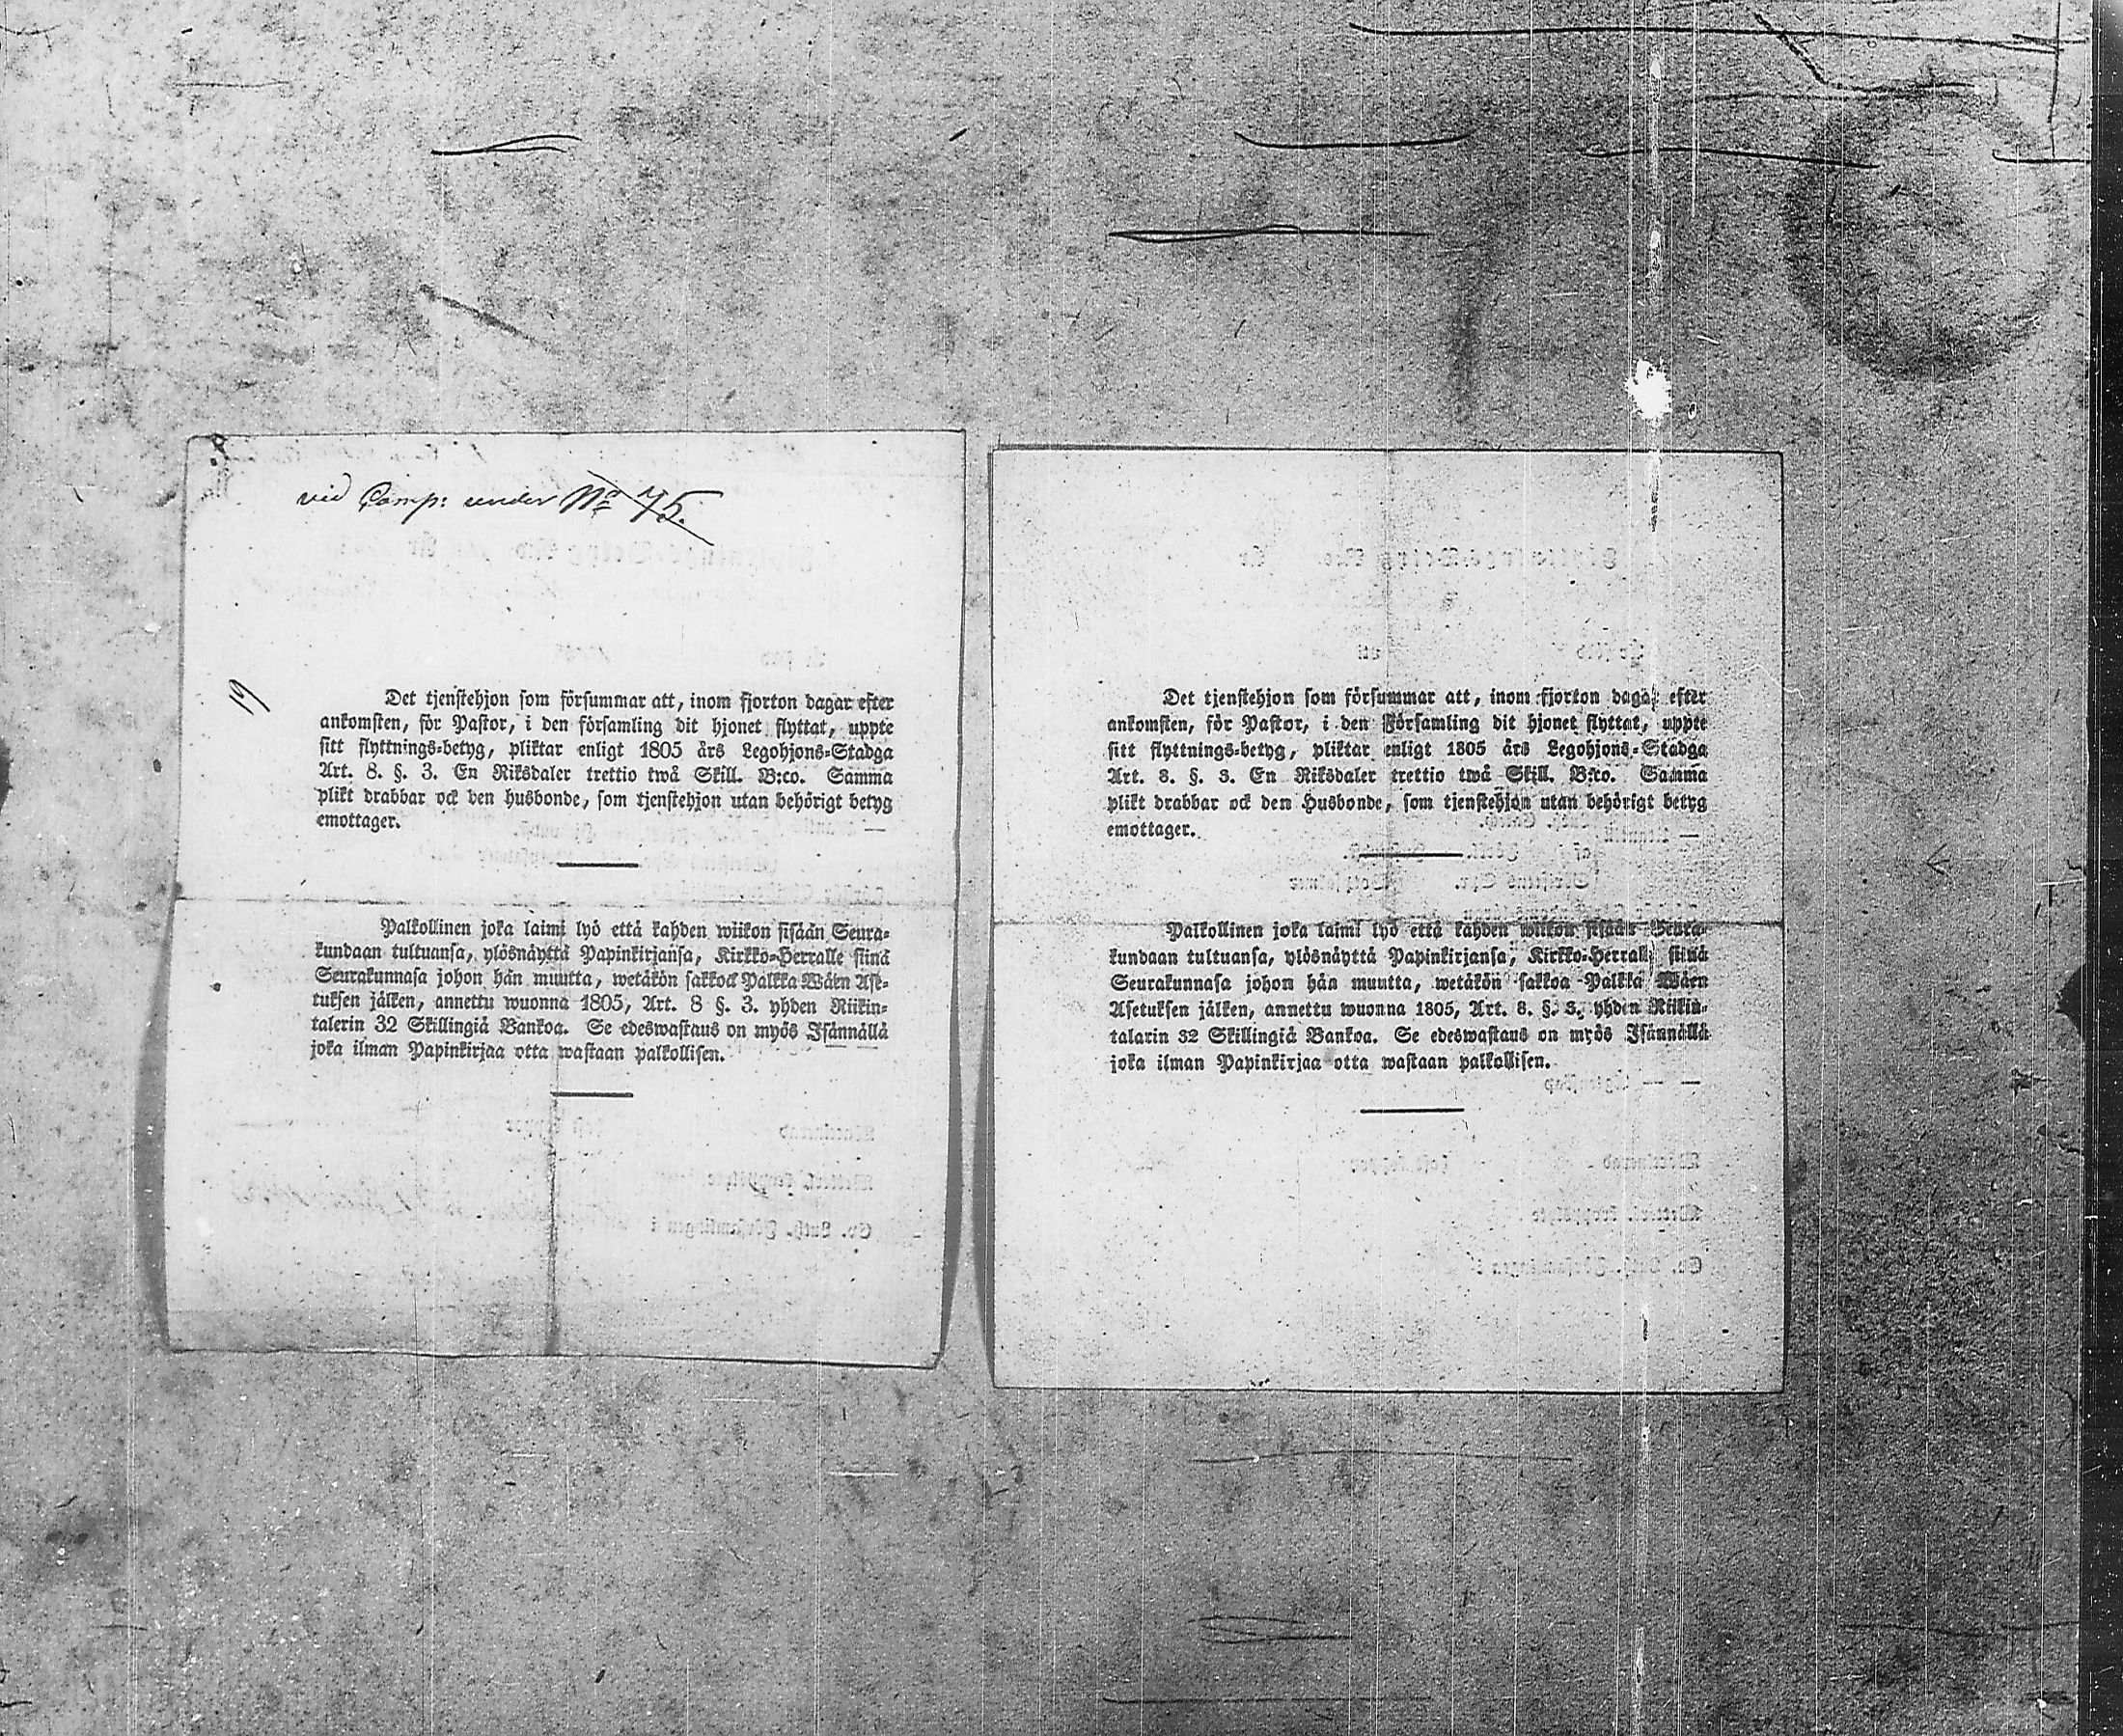 vid Comp: under No 75.
19
Det tjenstehjon som försummar att, inom fjorton dagar efter
ankomsten, för Pastor, i den församling dit hjonet flyttat, uppte
sitt flyttnings-betyg, pliktar enligt 1805 års Legohjons-Stadga
Art. 8. §. 3. En Riksdaler trettio twå Skill. B:co. Samma
plikt drabbar ock den husbonde, som tjenstehjon utan behörigt betyg
emottager.
Palkollinen joka laimi lyö että kahden wiikon sisään Seura-
kundaan tultuansa, ylösnäyttä Papinkirjansa, Kirkko-Herralle siinä
Seurakunnasa johon hän muutta, wetäkön sakkoa Palkka-Wäen Ase-
tuksen jälken, annettu wuonna 1805, Art. 8 §. 3. yhden Riikin-
talerin 32 Skillingiä Bankoa. Se edeswastaus on myös Isännällä
joka ilman Papinkirjaa otta wastaan palkollisen.
Det tjenstehjon som försummar att, inom fjorton dagar efter
ankomsten, för Pastor, i den Församling dit hjonet flyttat, uppte
sitt flyttnings-betyg, pliktar enligt 1805 års Legohjons-Stadga
Art. 8. §. 3. En Riksdaler trettio twå Skill. B:co. Samma
plikt drabbar ock den Husbonde, som tjenstehjon utan behörigt betyg
emottager.
Palkollinen joka laimi lyö että kahden wiikon sisään Seura-
kundaan tultuansa, ylösnäyttä Papinkirjansa, Kirkko-Herralle siinä
Seurakunnasa johon hän muutta, wetäkön sakkoa Palkka Wäen
Asetuksen jälken, annettu wuonna 1805, Art. 8. §. 3. yhden Riikin-
talarin 32 Skillingiä Bankoa. Se edeswastaus on myös Isännällä
joka ilman Papinkirjaa otta wastaan palkollisen.